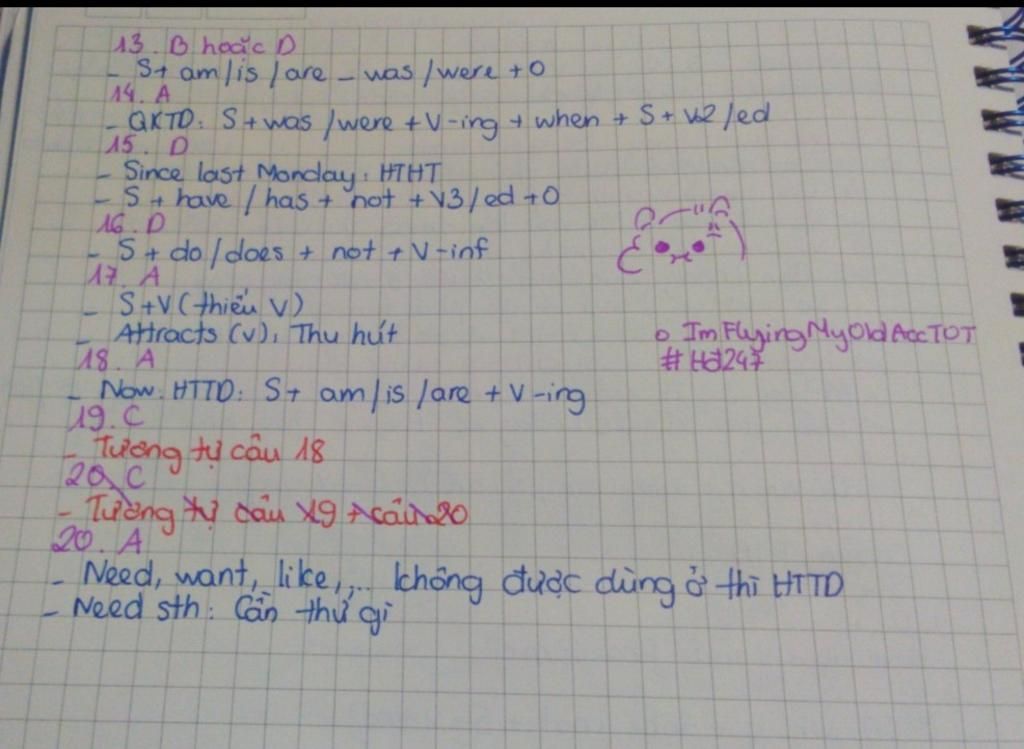 13. B hoặc D
- S+ am/is/are - was/were + O
14. A
- QKTD: S+was/were + V-ing + when + S + V2/ed
15. D
- Since last Monday: HTHT
- S + have/has + not + V3/ed + O
16. D
- S + do/does + not + V-inf
17. A
- S+V (thiếu V)
- Attracts (v): Thu hút
o ImFlyingMyOldAccTOT
#Hd247
18. A
- Now: HTTD: S+ am/is/are + V-ing
19. C
- Tương tự câu 18
20. C
- Tương tự câu 19 + câu 20
20. A
- Need, want, like,... không được dùng ở thì HTTD
- Need sth: Cần thứ gì